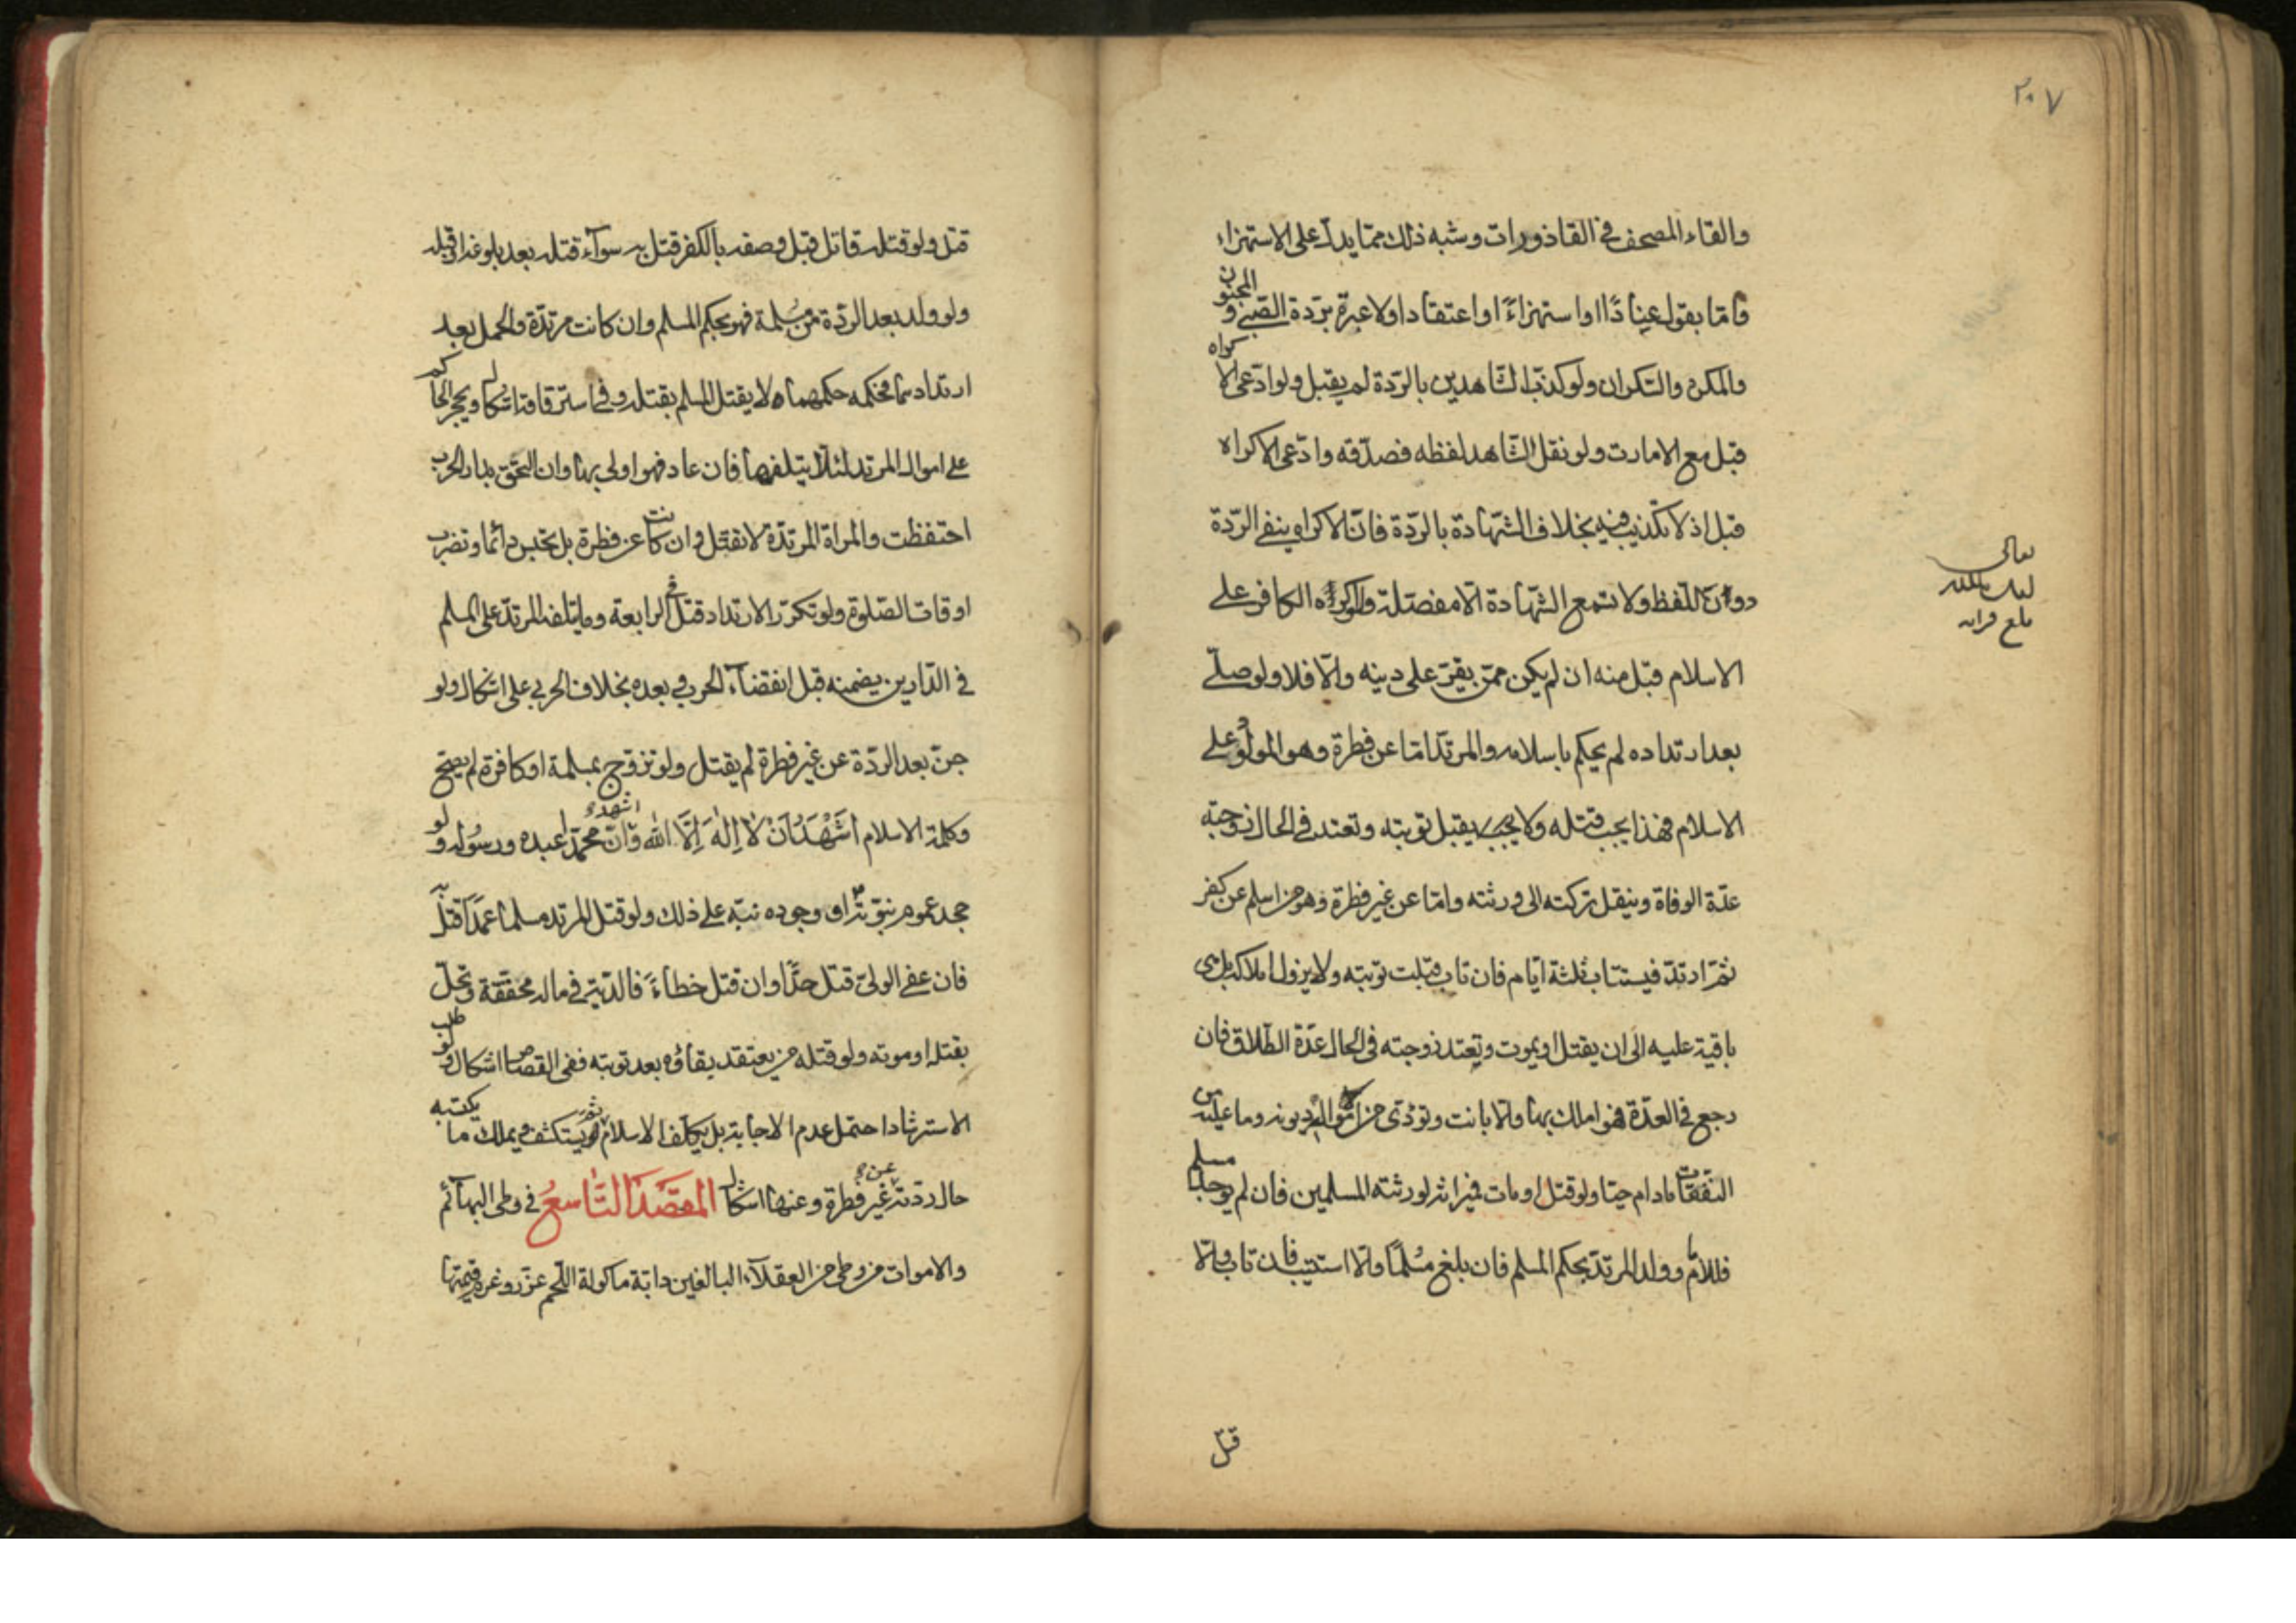 ٣٠٧
والقاء المصحف في القاذورات وشبه ذلك مما يدلّ على الاستهزاء
وامّا بقول عنادًا او استهزاءً او اعتقادا ولا عبرة بردّة الصّبي والمجنون
والمكره والسّكران ولو كذّب الشّاهدين بالردّة لم يقبل ولو ادّعى الاكراه
قبل مع الامارت ولو نقل الشّاهد لفظه فصدّقه وادّعى الاكراه
قبل اذ لا تكذيب فيه بخلاف الشّهادة بالردّة فانّ الاكراه ينفي الردّة
دون اللّفظ ولا تسمع الشّهادة الّا مفصّلة ولو اكره الكافر على
الاسلام قبل منه ان لم يكن ممّن يقرّ على دينه والّا فلا ولو صلّى
بعد ارتداده لم يحكم باسلامه والمرتدّ امّا عن فطرة وهو المولود على
الاسلام فهذا يجب قتله ولا يقبل توبته وتعتد في الحال زوجته
عدّة الوفاة وينقل تركته الى ورثته وامّا عن غير فطرة وهو من اسلم عن كفر
ثمّ ارتدّ فيستتاب ثلثة ايّام فان تاب قبلت توبته ولا يزول املاكه بل هي
باقية عليه الى ان يقتل او يموت وتعتد زوجته في الحال عدّة الطّلاق فان
رجع في العدّة فهو املك بها والّا بانت وتؤدّى من امواله ديونه وما عليه من
النفقات مادام حيّا ولو قتل او مات فميراثه لورثته المسلمين فان لم يوجد مسلم
فللامام وولد المرتدّ بحكم المسلم فان بلغ مُسلمًا والّا استتيب فان تاب والّا
قتل
تعالى
بلغ قراءة
قتل ولو قتله قاتل قبل وصفه بالكفر قتل به سواء قتله بعد بلوغه او قبله
ولو ولد بعد الردّة من مُسلمة فهو بحكم المسلم وان كانت مرتدّة والحمل بعد
ارتدادهما فحكمه حكمهما ولا يقتل المسلم بقتله وفي استرقاقه اشكال ويحجر الحاكم
على اموال المرتد لئلّا يتلفها فان عاد فهو اولى بها وان التحق بدار الحرب
احتفظت والمراة المرتدّة لا تقتل وان كانت عن فطرة بل تحبس دائما وتضرب
اوقات الصّلوة ولو تكرّر الارتداد قتل في الرابعة وما يتلفه المرتدّ على المسلم
في الدّارين يضمنه قبل انقضآء الحرب وبعده بخلاف الحربي على اشكال ولو
جنّ بعد الردّة عن غير فطرة لم يقتل ولو تزوّج بمسلمة او كافرة لم يصحّ
وكلمة الاسلام اَشْهَدُ اَنْ لاٰ اِلٰهَ اِلَّا اللّٰه واشهد انّ محمّدا عبده ورسُوله ولو
جحد عموم نبوّته او وجوده نبّه على ذلك ولو قتل المرتد مسلما عمدًا قتل به
فان عفى الولىّ قتل حدًّا وان قتل خطاءً فالديّة في ماله مخفّفة وتحلّ
بقتله او موته ولو قتله من يعتقد بقاؤه بعد توبته ففي القصاص اشكال ولو طلب
الاسترشاد احتمل عدم الاجابة بل يكلّف الاسلام ثمّ يستكشف ويملك ما يكتسبه
حال ردّته عن غير فطرة وعنها اشكال المقصَد التّٰاسعُ في وطي البهآئم
والاموات من وطى من العقلآء البالغين دابّة ماكولة اللّحم عزّر وغرم قيمتها